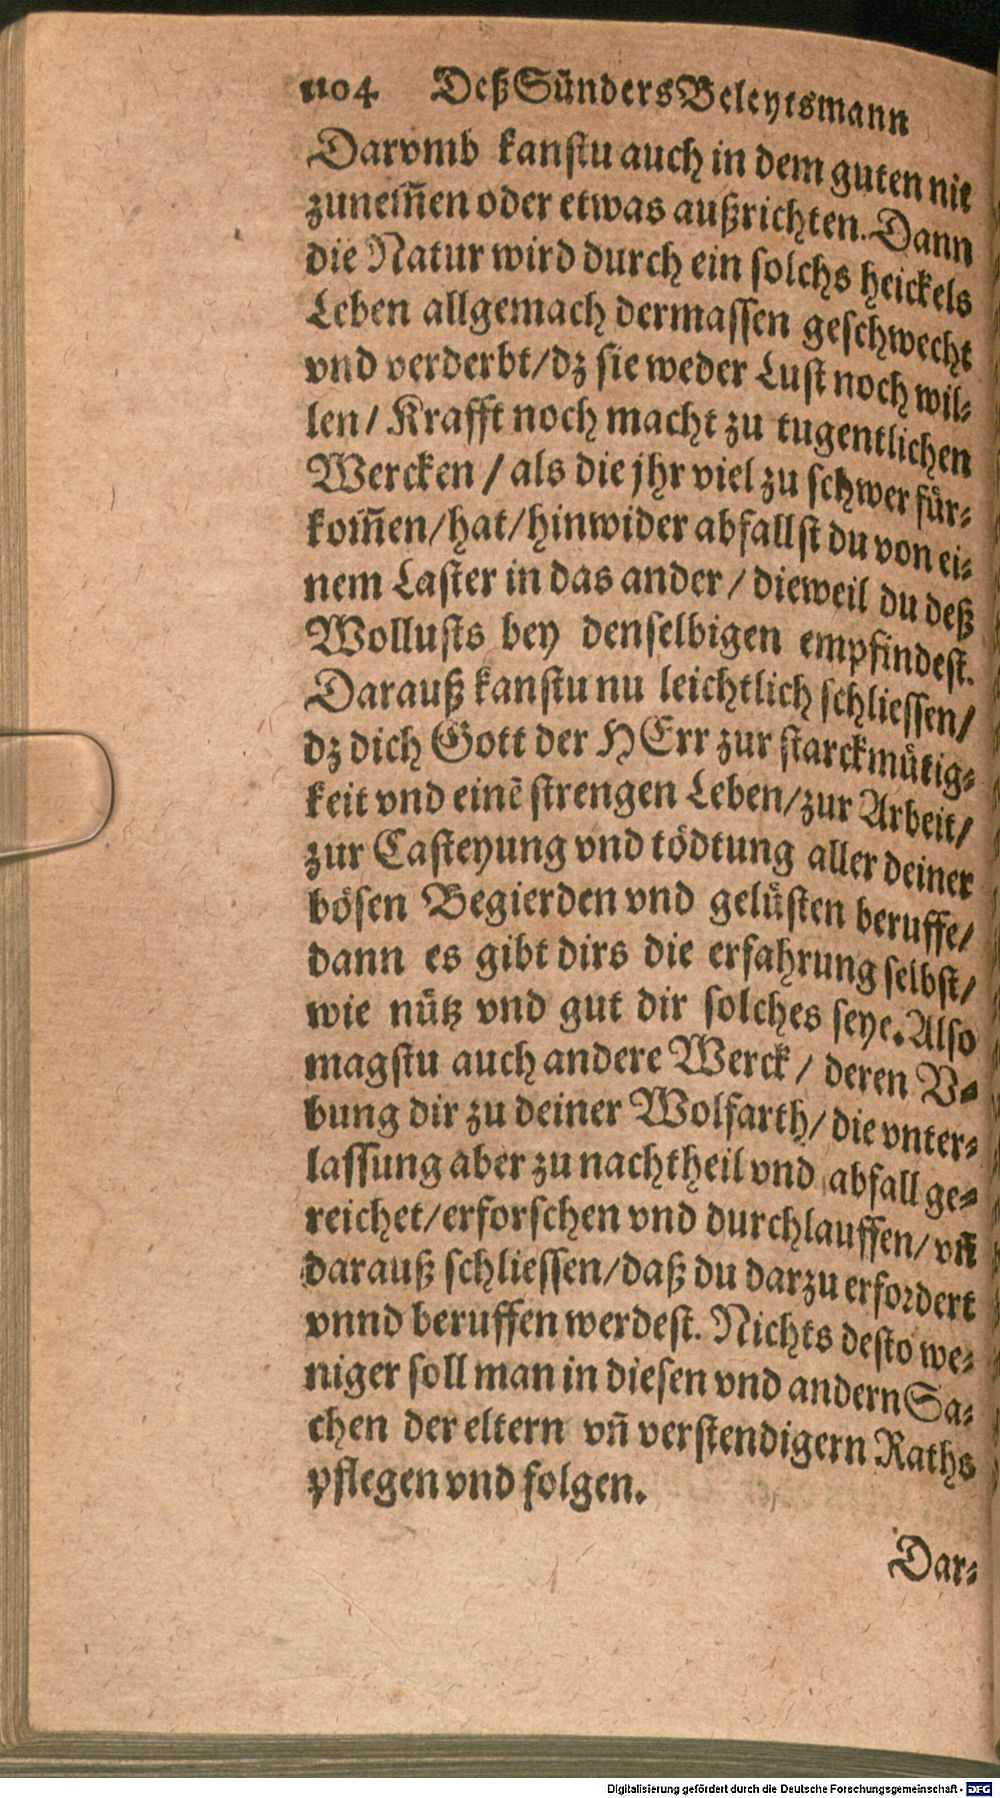 1104 Deß Sünders Beleytsmann
Darvmb kanstu auch in dem guten nit
zunem̃en oder etwas außrichten. Dann
die Natur wird durch ein solchs heickels
Leben allgemach dermassen geschwecht
vnd verderbt/ dz sie weder Lust noch wil-
len/ Krafft noch macht zu tugentlichen
Wercken/ als die jhr viel zu schwer für-
kom̃en/ hat/ hinwider abfallst du von ei-
nem Laster in das ander/ dieweil du deß
Wollusts bey denselbigen empfindest.
Darauß kanstu nu leichtlich schliessen/
dz dich Gott der HErr zur starckmütig-
keit vnd einẽ strengen Leben/ zur Arbeit/
zur Casteyung vnd tödtung aller deiner
bösen Begierden vnd gelüsten beruffe/
dann es gibt dirs die erfahrung selbst/
wie nütz vnd gut dir solches seye. Also
magstu auch andere Werck/ deren V-
bung dir zu deiner Wolfarth/ die vnter-
lassung aber zu nachtheil vnd abfall ge-
reichet/ erforschen vnd durchlauffen/ vñ
darauß schliessen/ daß du darzu erfordert
vnnd beruffen werdest. Nichts desto we-
niger soll man in diesen vnd andern Sa-
chen der eltern vñ verstendigern Raths
pflegen vnd folgen.
Dar-
Digitalisierung gefördert durch die Deutsche Forschungsgemeinschaft - DFG